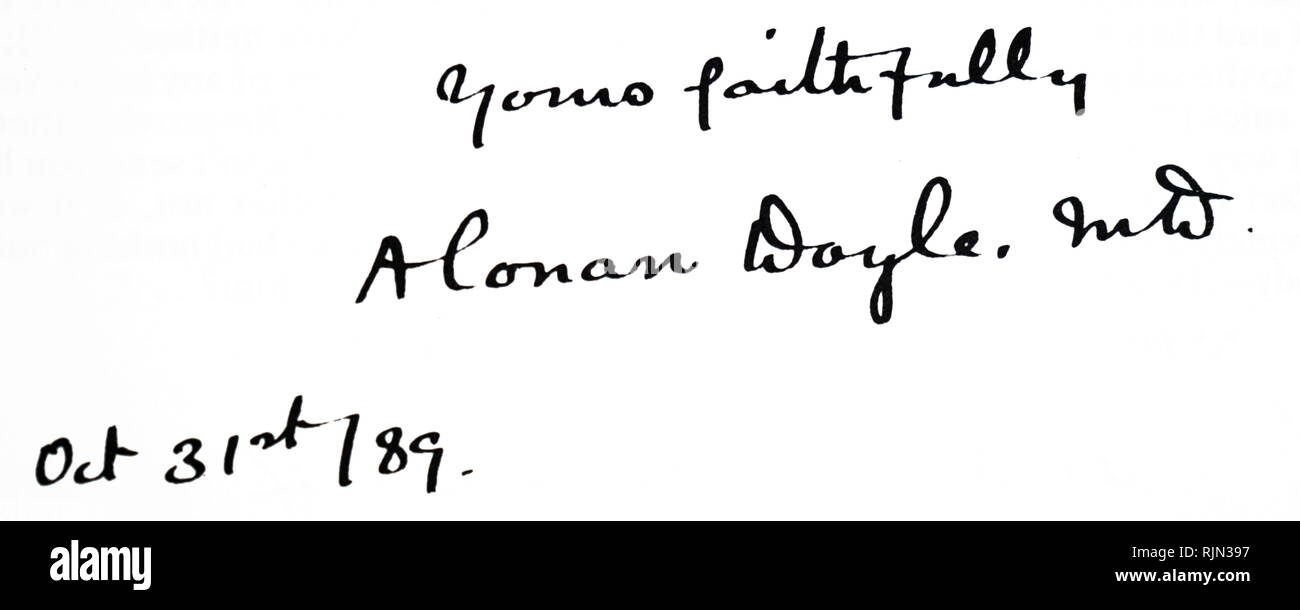 Yours faithfully
A Conan Doyle. MD.
Oct 31st/89.
alamy
Image ID: RJN397
www.alamy.com